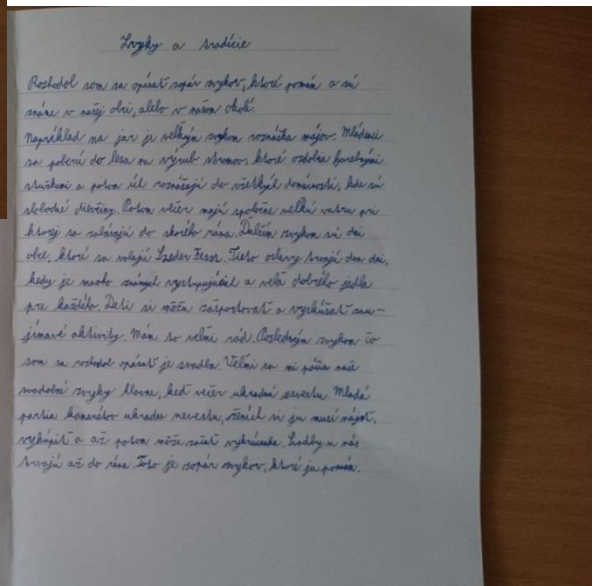 Zvyky a tradície
Rozhodol som sa opísať zopár zvykov, ktoré poznám a sú
známe v našej obci, alebo v našom okolí.
Napríklad na jar je veľkým zvykom roznáška májov. Mládenci
sa poberú do lesa na výrub stromov, ktoré ozdobia farebnými
stužkami a potom ich roznášajú do všetkých domácností, kde sú
slobodné dievčiny. Potom večer majú spoločne veľkú vatru pri
ktorej sa zabávajú do skorého rána. Ďalším zvykom sú dni
obce, ktoré sa volajú Szeder Feszt. Tieto oslavy trvajú dva dni,
kedy je mnoho známych vystupujúcich a veľa dobrého jedla
pre každého. Deti si môžu zašportovať a vyskúšať zau-
jímavé aktivity. Mám to veľmi rád. Posledným zvykom čo
som sa rozhodol opísať je svadba. Veľmi sa mi páčia naše
svadobné zvyky hlavne, keď večer ukradnú nevestu. Mladá
partia kamarátov ukradne nevestu, ženích si ju musí nájsť,
vykúpiť a až potom môže začať vykrúcanka. Svadby u nás
trvajú až do rána. Toto je zopár zvykov, ktoré ja poznám.